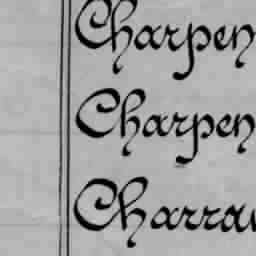 Charpen
Charpen
Charrau